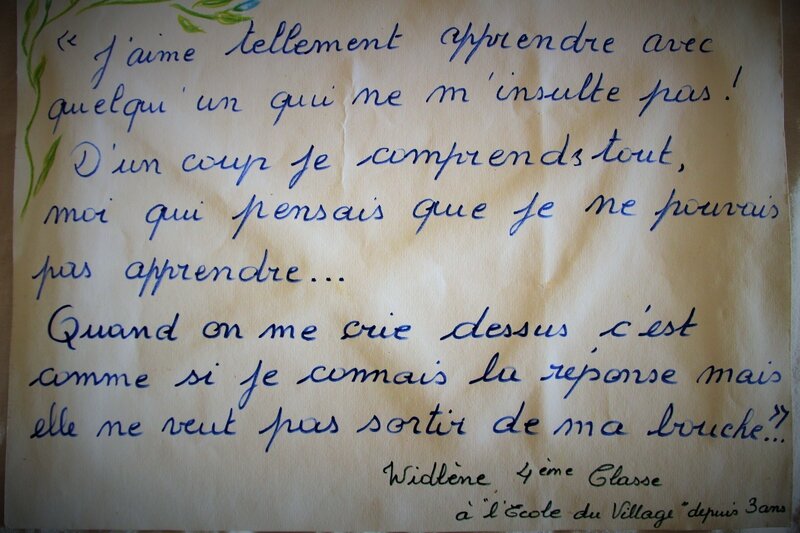 « J'aime tellement apprendre avec
quelqu'un qui ne m'insulte pas !
D'un coup je comprends tout,
moi qui pensais que je ne pouvais
pas apprendre...
Quand on me crie dessus c'est
comme si je connais la réponse mais
elle ne veut pas sortir de ma bouche... »
Widlène 4ème Classe
à "l'Ecole du Village" depuis 3 ans